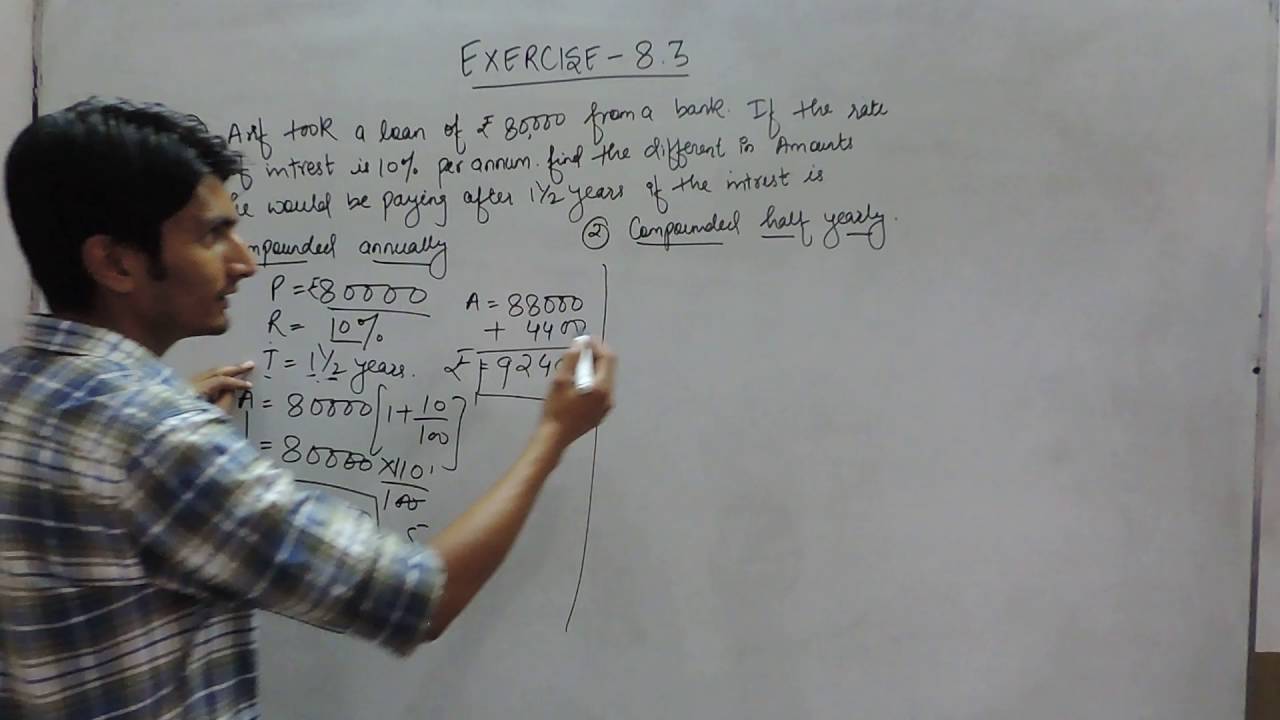 EXERCISE - 8.3
Arif took a loan of ₹ 80,000 from a bank. If the rate
of intrest is 10% per annum. find the different in Amounts
would be paying after 1 1/2 years of the intrest is
annually
② Compounded half yearly.
P = ₹80000
R = 10%
T = 1 1/2 years.
A = 80000[1+10/100]
= 80000×110/100
5
A = 88000
+ 4400
₹ = 924